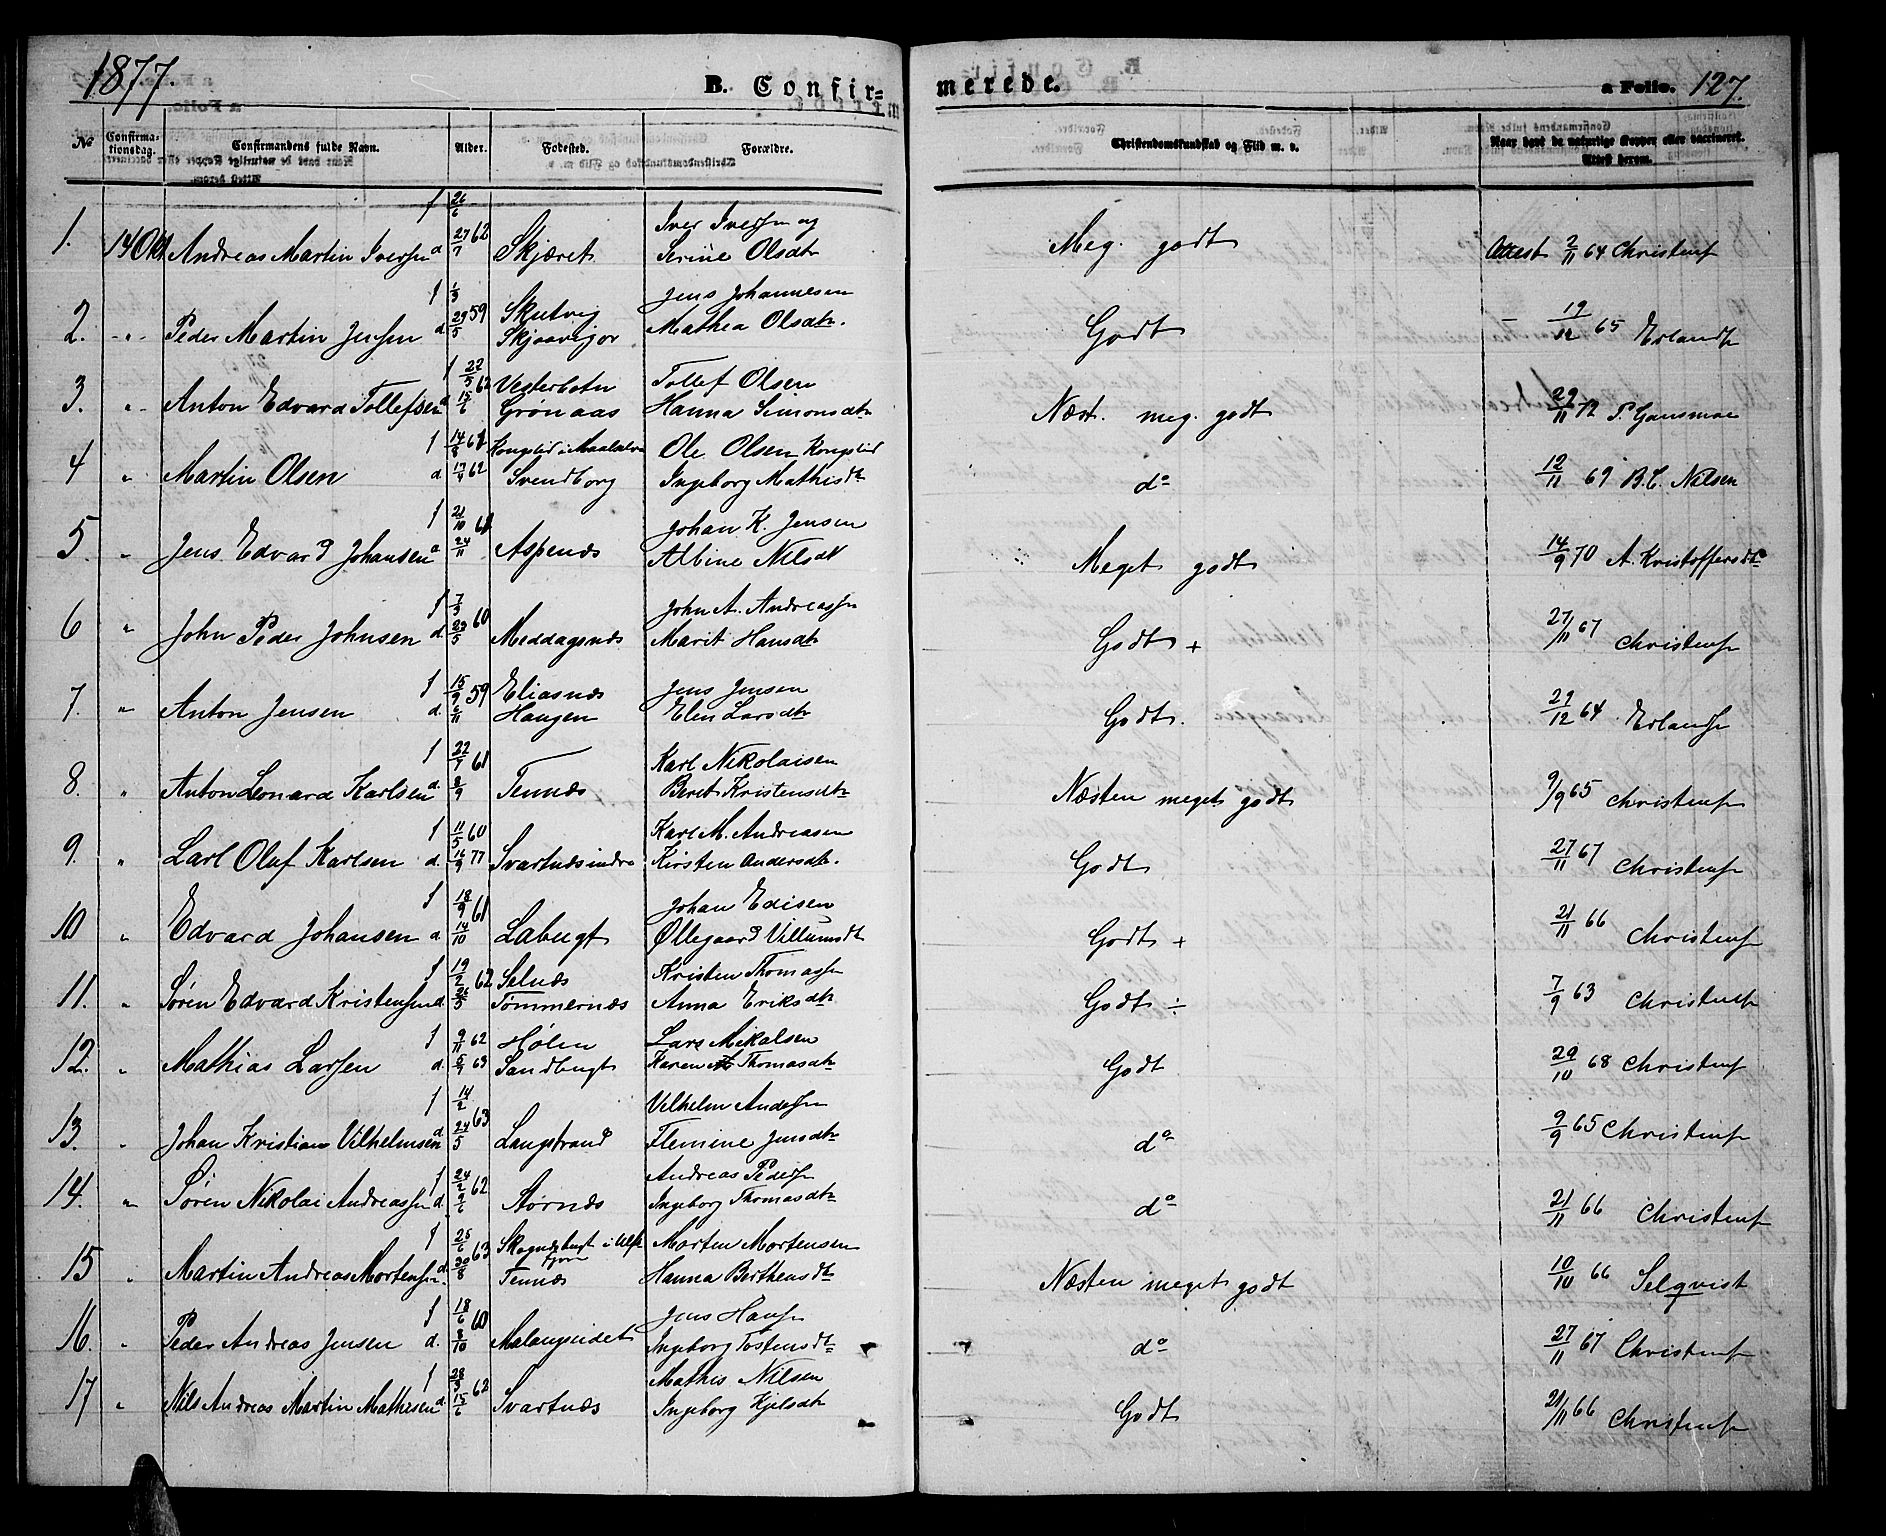 1877.
B. Confir=
merede.
a Folio. 127.
No Confirmationsdag. Confirmandens fulde Navn. Alder. Fødested. Forældre. Christendomskundskab og Flid m. v. Naar havt de naturlige Kopper eller vaccineret. Attest herom.
1. 14 Okt Andreas Martin Iversen f 26/6 d 27/7 62 Skjæret Iver Iversen og Serine Olsdtr Meg. godt Attest 2/11 64 Christensen
2. " Peder Martin Jensen f 1/3 d. 29/5 59 Skutvig Skjaavigør Jens Johannesen Mathea Olsdtr. Godt - 19/12 65 Erlandsen
3. " Anton Edvard Tollefsen f 22/5 d 15/6 62 Vesterbotn Grønaas Tollef Olsen Hanna Simonsdtr Næst. meg. godt 29/11 72 P. Gausmoe
4 " Martin Olsen f 14/8 61 d. 17/4 62 Kongslid i Maalselv Svendborg Ole Olsen Kongslid Ingeborg Mathisdtr do 12/11 69 B.C. Nilsen
5. " Jens Edvard Johansen f 21/10 d 24/11 61 Aspenæs Johan K. Jensen Albine Nilsdt Meget godt 14/9 70 A. Kristoffersdtr
6 " John Peder Johnsen f 7/3 d. 29/5 60 Meddagsnæs John A. Andreassen Marit Hansdtr Godt + 27/11 67 Christensen
7. " Anton Jensen f 15/9 d. 6/11 59 Eliasnæs Haugen Jens Jensen Elen Larsdtr Godt. 29/12 64 Erlandsen
8. " Anton Leonard Karlsen f 22/7 d. 8/9 61 Tennæs Karl Nikolaisen Beret Kristensdtr Næsten meget godt 9/9 65 Christensen
9. " Carl Oluf Karlsen f 11/5 60 d. 16/9 77 Svartnæs indre Karl M. Andreasen Kirsten Andersdtr. Godt 27/11 67 Christensen
10 " Edvard Johansen f 18/9 d 14/10 61 Labugt Johan Edisen Øllegaard Villumsdt Godt + 21/11 66 Christensen
11. " Søren Edvard Kristensen f 19/2 d. 26/5 62 Selnæs Tømmernæs Kristen Thomassen Anna Eriksdtr Godt ÷ 7/9 63 Christensen
12. " Mathias Larsen f 9/11 62 d. 5/4 63 Hølen Sandbugt Lars Mikalsen Karen Thomasdtr Godt 29/10 68 Christensen
13. " Johan Kristian Vilhelmsen f 14/2 d 24/5 63 Langstrand Vilhelm Andersen Flemine Jensdtr do 9/9 65 Christensen
14. " Søren Nikolai Andreassen f 24/2 d. 9/6 62 Størnæs Andreas Pedersen Ingeborg Thomasdtr do 21/11 66 Christensen
15 " Martin Andreas Mortensen f 26/6 d. 30/8 63 Tennæs Morten Mortensen Hanna Berthensdtr Næsten meget godt 10/10 66 Selqvist
16. " Peder Andreas Jensen f 18/6 d. 8/10 60 Malangseidet Jens Hansen Ingeborg Tostensdtr do 27/11 67 Christensen
17 " Nils Andreas Martin Mathisen f 28/3 d. 15/6 62 Svartnæs Mathis Nilsen Ingeborg Kjelsdtr Godt 21/11 66 Christensen